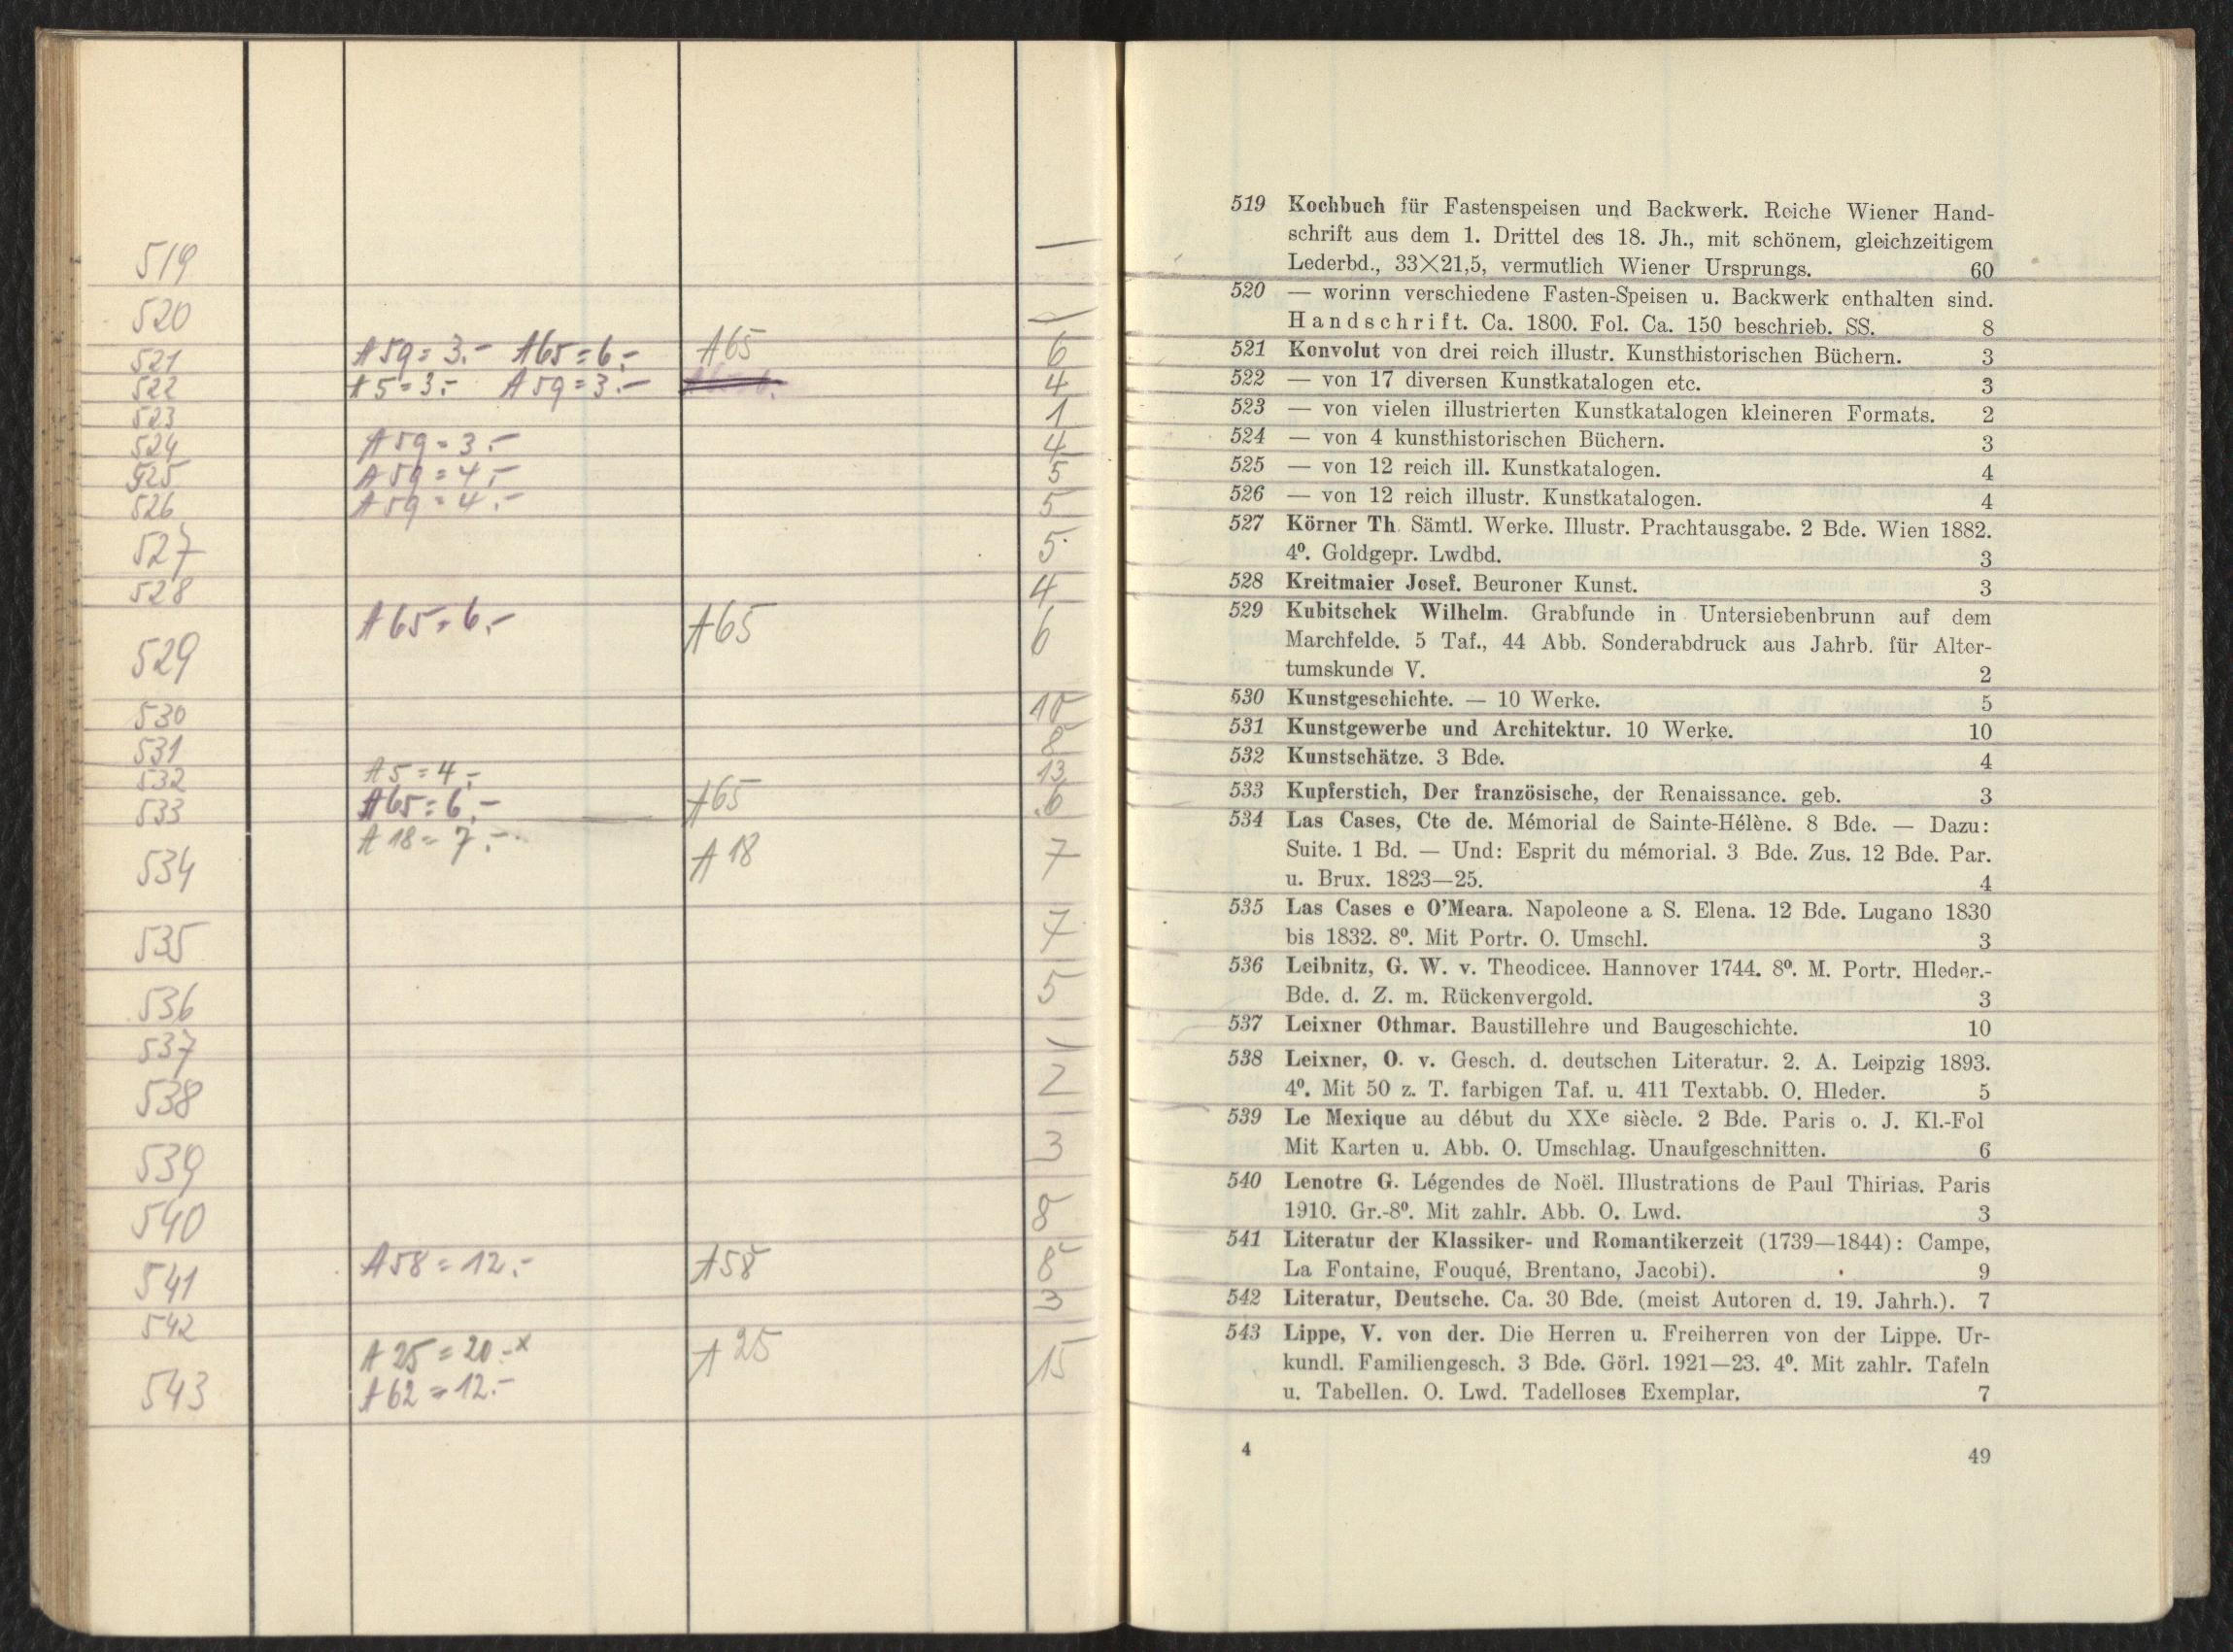 519 —
520 —
521 A59=3.- A65=6.- A65 6
522 A5=3.- A59=3.- 4
523 1
524 A59=3.- 4
525 A59=4.- 5
526 A59=4.- 5
527 5
528 4
529 A65=6.- A65 6
530 10
531 8
532 A5=4.- 13
533 A65=6.- A65 6
534 A18=7.- A18 7
535 7
536 5
537 —
538 2
539 3
540 8
541 A58=12.- A58 8
542 3
543 A25=20.-x A25 15
A62=12.-
519 Kochbuch für Fastenspeisen und Backwerk. Reiche Wiener Hand-
schrift aus dem 1. Drittel des 18. Jh., mit schönem, gleichzeitigem
Lederbd., 33×21,5, vermutlich Wiener Ursprungs. 60
520 — worinn verschiedene Fasten-Speisen u. Backwerk enthalten sind.
Handschrift. Ca. 1800. Fol. Ca. 150 beschrieb. SS. 8
521 Konvolut von drei reich illustr. Kunsthistorischen Büchern. 3
522 — von 17 diversen Kunstkatalogen etc. 3
523 — von vielen illustrierten Kunstkatalogen kleineren Formats. 2
524 — von 4 kunsthistorischen Büchern. 3
525 — von 12 reich ill. Kunstkatalogen. 4
526 — von 12 reich illustr. Kunstkatalogen. 4
527 Körner Th. Sämtl. Werke. Illustr. Prachtausgabe. 2 Bde. Wien 1882.
4⁰. Goldgepr. Lwdbd. 3
528 Kreitmaier Josef. Beuroner Kunst. 3
529 Kubitschek Wilhelm. Grabfunde in Untersiebenbrunn auf dem
Marchfelde. 5 Taf., 44 Abb. Sonderabdruck aus Jahrb. für Alter-
tumskunde V. 2
530 Kunstgeschichte. — 10 Werke. 5
531 Kunstgewerbe und Architektur. 10 Werke. 10
532 Kunstschätze. 3 Bde. 4
533 Kupferstich, Der französische, der Renaissance. geb. 3
534 Las Cases, Cte de. Mémorial de Sainte-Hélène. 8 Bde. — Dazu:
Suite. 1 Bd. — Und: Esprit du mémorial. 3 Bde. Zus. 12 Bde. Par.
u. Brux. 1823—25. 4
535 Las Cases e O'Meara. Napoleone a S. Elena. 12 Bde. Lugano 1830
bis 1832. 8⁰. Mit Portr. O. Umschl. 3
536 Leibnitz, G. W. v. Theodicee. Hannover 1744. 8⁰. M. Portr. Hleder.-
Bde. d. Z. m. Rückenvergold. 3
537 Leixner Othmar. Baustillehre und Baugeschichte. 10
538 Leixner, O. v. Gesch. d. deutschen Literatur. 2. A. Leipzig 1893.
4⁰. Mit 50 z. T. farbigen Taf. u. 411 Textabb. O. Hleder. 5
539 Le Mexique au début du XXe siècle. 2 Bde. Paris o. J. Kl.-Fol
Mit Karten u. Abb. O. Umschlag. Unaufgeschnitten. 6
540 Lenotre G. Légendes de Noël. Illustrations de Paul Thirias. Paris
1910. Gr.-8⁰. Mit zahlr. Abb. O. Lwd. 3
541 Literatur der Klassiker- und Romantikerzeit (1739—1844): Campe,
La Fontaine, Fouqué, Brentano, Jacobi). 9
542 Literatur, Deutsche. Ca. 30 Bde. (meist Autoren d. 19. Jahrh.). 7
543 Lippe, V. von der. Die Herren u. Freiherren von der Lippe. Ur-
kundl. Familiengesch. 3 Bde. Görl. 1921—23. 4⁰. Mit zahlr. Tafeln
u. Tabellen. O. Lwd. Tadelloses Exemplar. 7
4 49